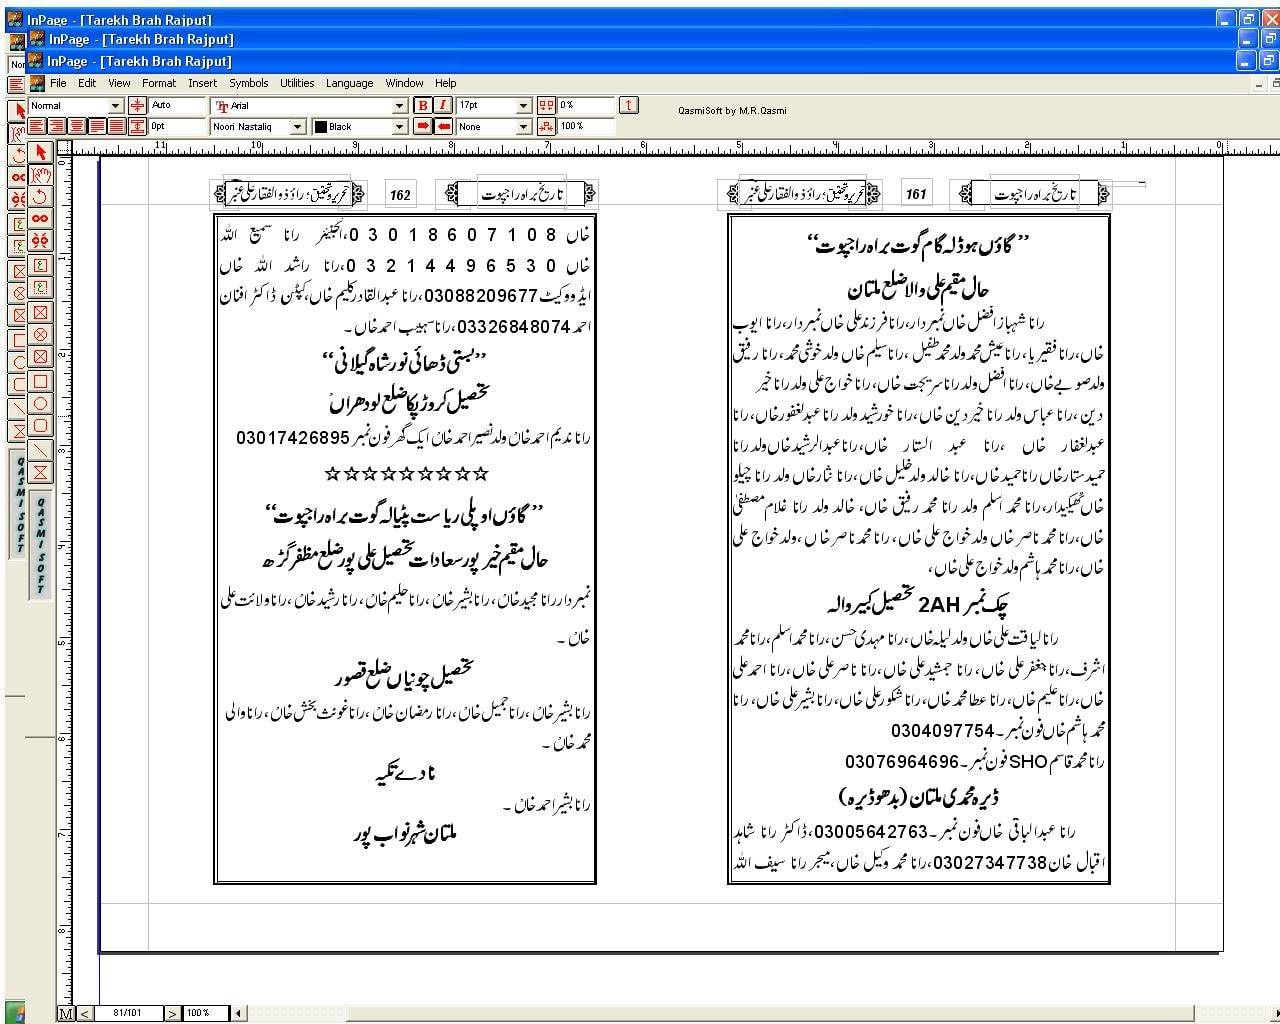 InPage - [Tarekh Brah Rajput]
InPage - [Tarekh Brah Rajput]
InPage - [Tarekh Brah Rajput]
File Edit View Format Insert Symbols Utilities Language Window Help
Normal Auto Arial B I 17pt 0% QasmiSoft by M.R.Qasmi
0pt Noori Nastaliq Black None 100%
تاریخ براہ راجپوت 161 تحریر و تحقیق؛ راؤ ذوالفقار علی عنبر
’’ گاؤں ہوڈلہ گام گوت براہ راجپوت‘‘
حال مقیم علی والا ضلع ملتان
رانا شہباز افضل خاں نمبردار،رانا فرزند علی خاں نمبردار،رانا ایوب
خاں،رانا فقیریا،رانا عیش محمد ولد محمد طفیل ،رانا سلیم خاں ولد خوشی محمد، رانا رفیق
ولد صوبے خاں، رانا افضل ولد رانا سربجت خاں،رانا خواج علی ولد رانا خیر
دین ،رانا عباس ولد رانا خیر دین خاں،رانا خورشید ولد رانا عبدلغفور خاں،رانا
عبدلغفار خاں ،رانا عبد الستار خاں،رانا عبدالرشید خاں ولد رانا
حمید ستار خاں رانا حمید خاں،رانا خالد ولد خلیل خاں،رانا نثار خاں ولد رانا چیلو
خاں ٹھیکیدار،رانا محمد اسلم ولد رانا محمد رفیق خاں، خالد ولد رانا غلام مصطفیٰ
خاں،رانا محمد ناصر خاں ولد خواج علی خاں، رانا محمد ناصر خاں ،ولد خواج علی
خاں،رانا محمد ہاشم ولد خواج علی خاں،
چک نمبر 2AH تحصیل کبیر والہ
رانا لیاقت علی خاں ولد لیلہ خاں،رانا مہدی حسن،رانا محمد اسلم،رانا محمد
اشرف،رانا جعفر علی خاں، رانا جمشید علی خاں،رانا ناصر علی خاں،رانا احمد علی
خاں،رانا علیم خاں،رانا عطا محمد خاں،رانا شکور علی خاں،رانا بشیر علی خاں، رانا
محمد ہاشم خاں فون نمبر۔0304097754
رانا محمد قاسم SHO فون نمبر۔03076964696
ڈیرہ محمدی ملتان (بدھو ڈیرہ)
رانا عبدالباقی خاں فون نمبر۔03005642763،ڈاکٹر رانا شاہد
اقبال خان 03027347738،رانا محمد وکیل خاں،میجر رانا سیف اللہ
تاریخ براہ راجپوت 162 تحریر و تحقیق؛ راؤ ذوالفقار علی عنبر
خاں 03018607108،انجینئر رانا سمیع اللہ
خاں 03214496530،رانا راشد اللہ خاں
ایڈووکیٹ 03088209677،رانا عبدالقادر کلیم خاں،کیپٹن ڈاکٹر افنان
احمد 03326848074،رانا سہیب احمد خاں۔
’’بستی ڈھائی نور شاہ گیلانی‘‘
تحصیل کروڑ پکا ضلع لودھراں
رانا ندیم احمد خاں ولد نصیر احمد خاں ایک گھر فون نمبر 03017426895
☆☆☆☆☆☆☆☆☆
’’ گاؤں اوپلی ریاست پٹیالہ گوت براہ راجپوت‘‘
حال مقیم خیر پور سعادات تحصیل علی پور ضلع مظفر گڑھ
نمبردار رانا مجید خاں،رانا بشیر خاں،رانا حلیم خاں،رانا رشید خاں،رانا ولائت علی
خاں۔
تحصیل چونیاں ضلع قصور
رانا بشیر خاں،رانا جمیل خاں،رانا رمضان خاں،رانا غوث بخش خاں،رانا والی
محمد خاں۔
نادے تکیہ
رانا بشیر احمد خاں۔
ملتان شہر نواب پور
QASMI SOFT
QASMI SOFT
81/101 100%